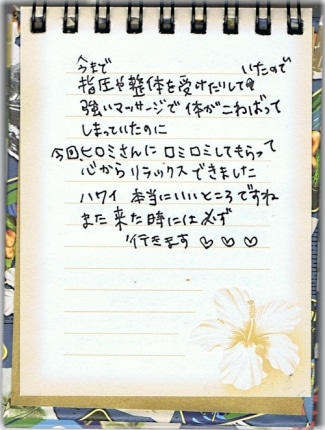 今まで　　　　　　　　いたので
指圧や整体を受けたりして
強いマッサージで体がこわばって
しまっていたのに
今回ヒロミさんにロミロミしてもらって
心からリラックスできました
ハワイ 本当にいいところですね
また来た時には必ず
行きます♡♡♡